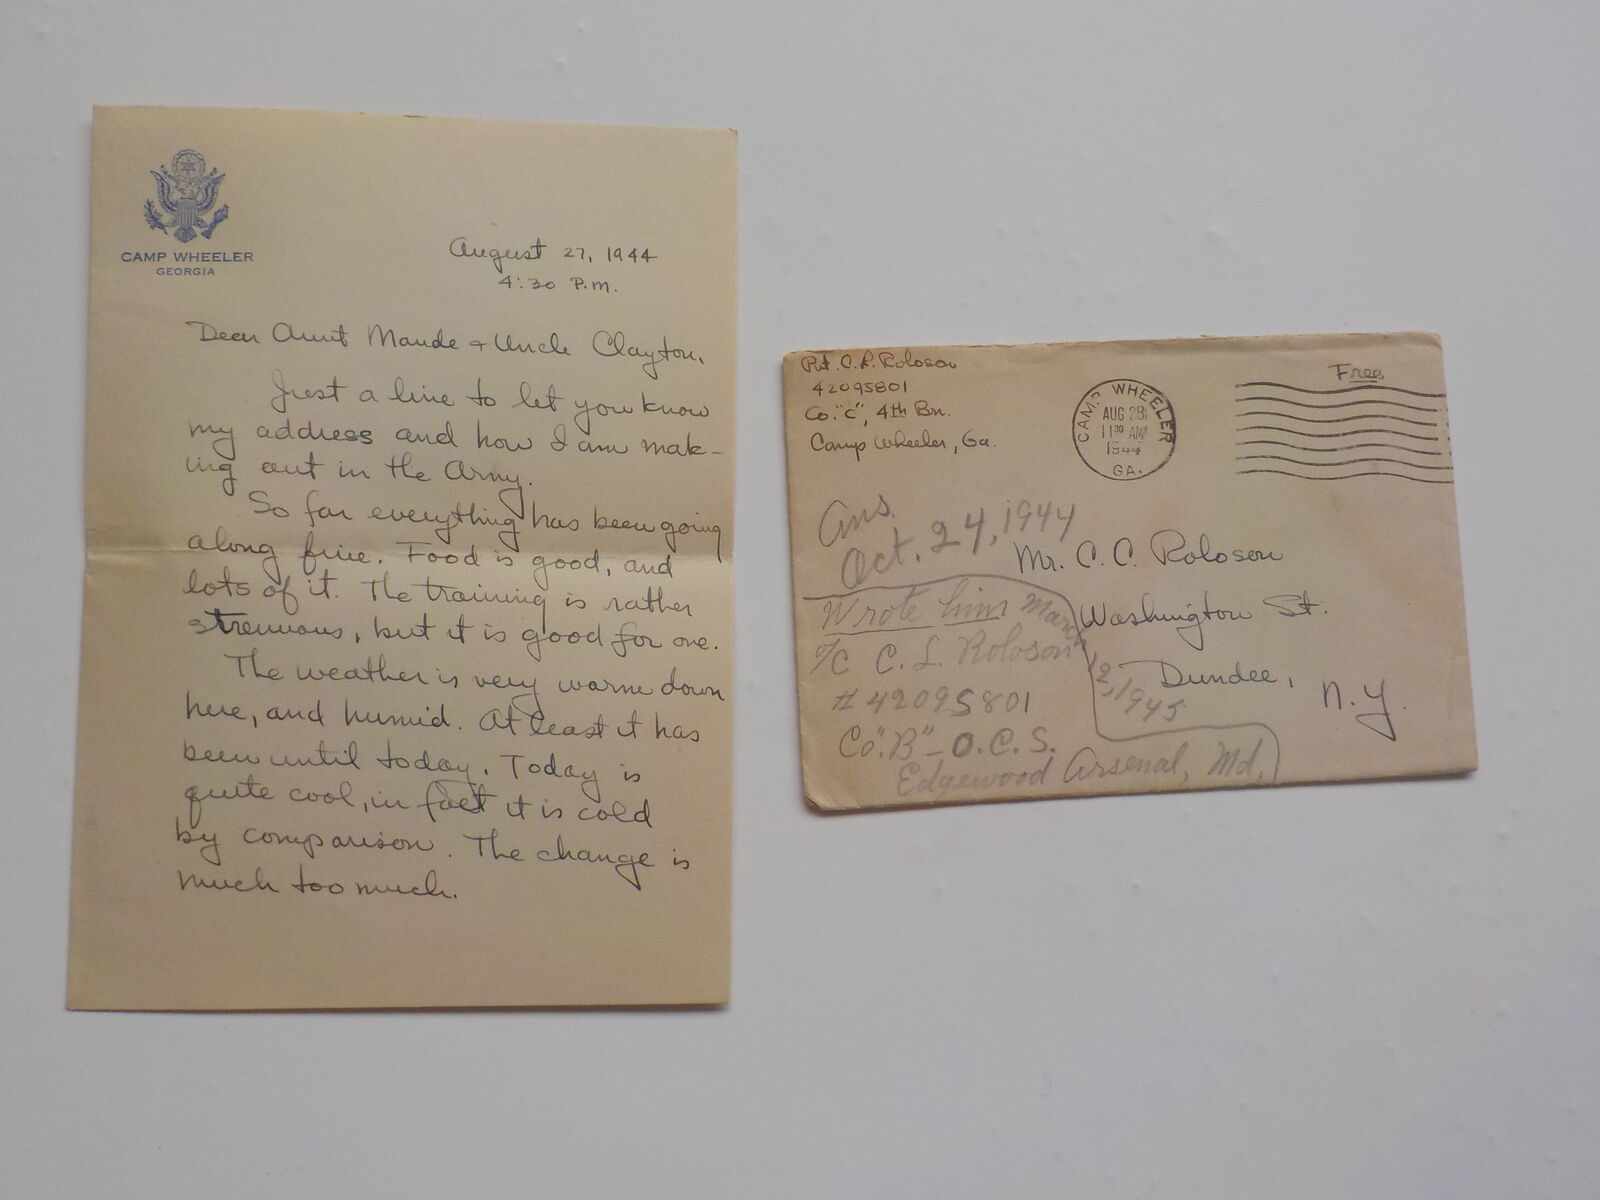 CAMP WHEELER
GEORGIA
August 27, 1944
4:30 P.M.
Dear Aunt Maude + Uncle Clayton,
Just a line to let you know
my address and how I am mak-
ing out in the Army.
So far everything has been going
along fine. Food is good, and
lots of it. The training is rather
strenuous, but it is good for one.
The weather is very warm down
here, and humid. At least it has
been until today. Today is
quite cool, in fact it is cold
by comparison. The change is
much too much.
Pvt. C. L. Roloson
42095801
Co. "C", 4th Bn.
Camp Wheeler, Ga.
CAMP WHEELER
AUG 28
11 30 AM
1944
GA.
Free
Mr. C. C. Roloson
Washington St.
Dundee,
N.Y.
Ans.
Oct. 24, 1944
Wrote him March
2, 1945
O/C C. L. Roloson
# 42095801
Co "B" - O.C.S.
Edgewood Arsenal, Md.